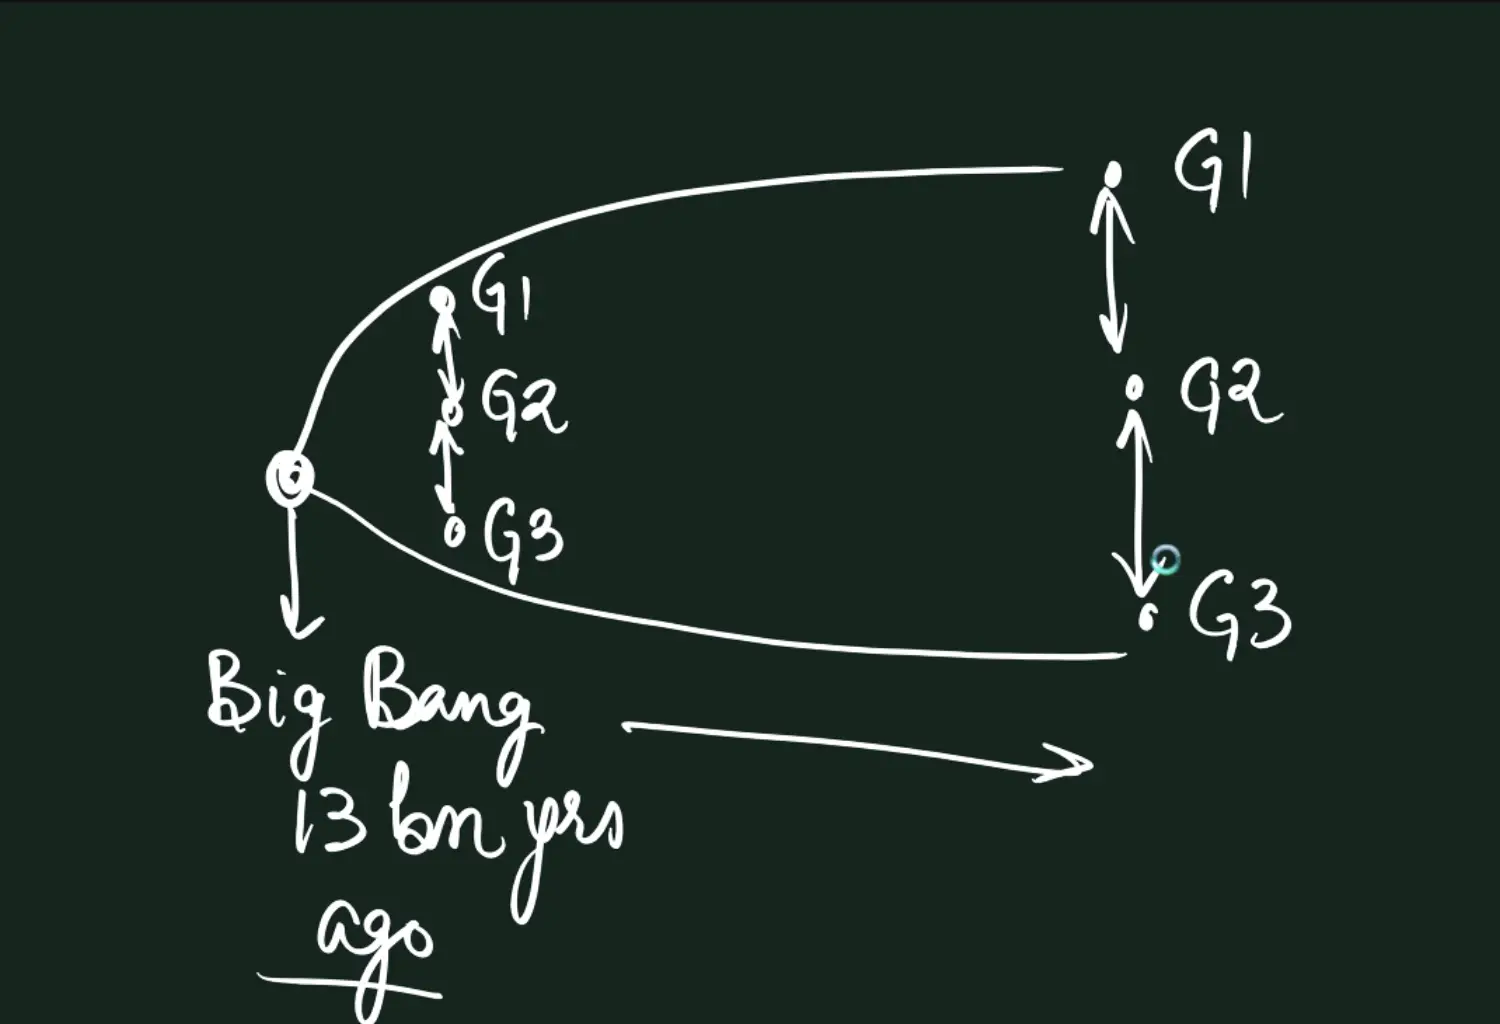 G1
G1
G2
G2
G3
G3
Big Bang
13 bn yrs
ago